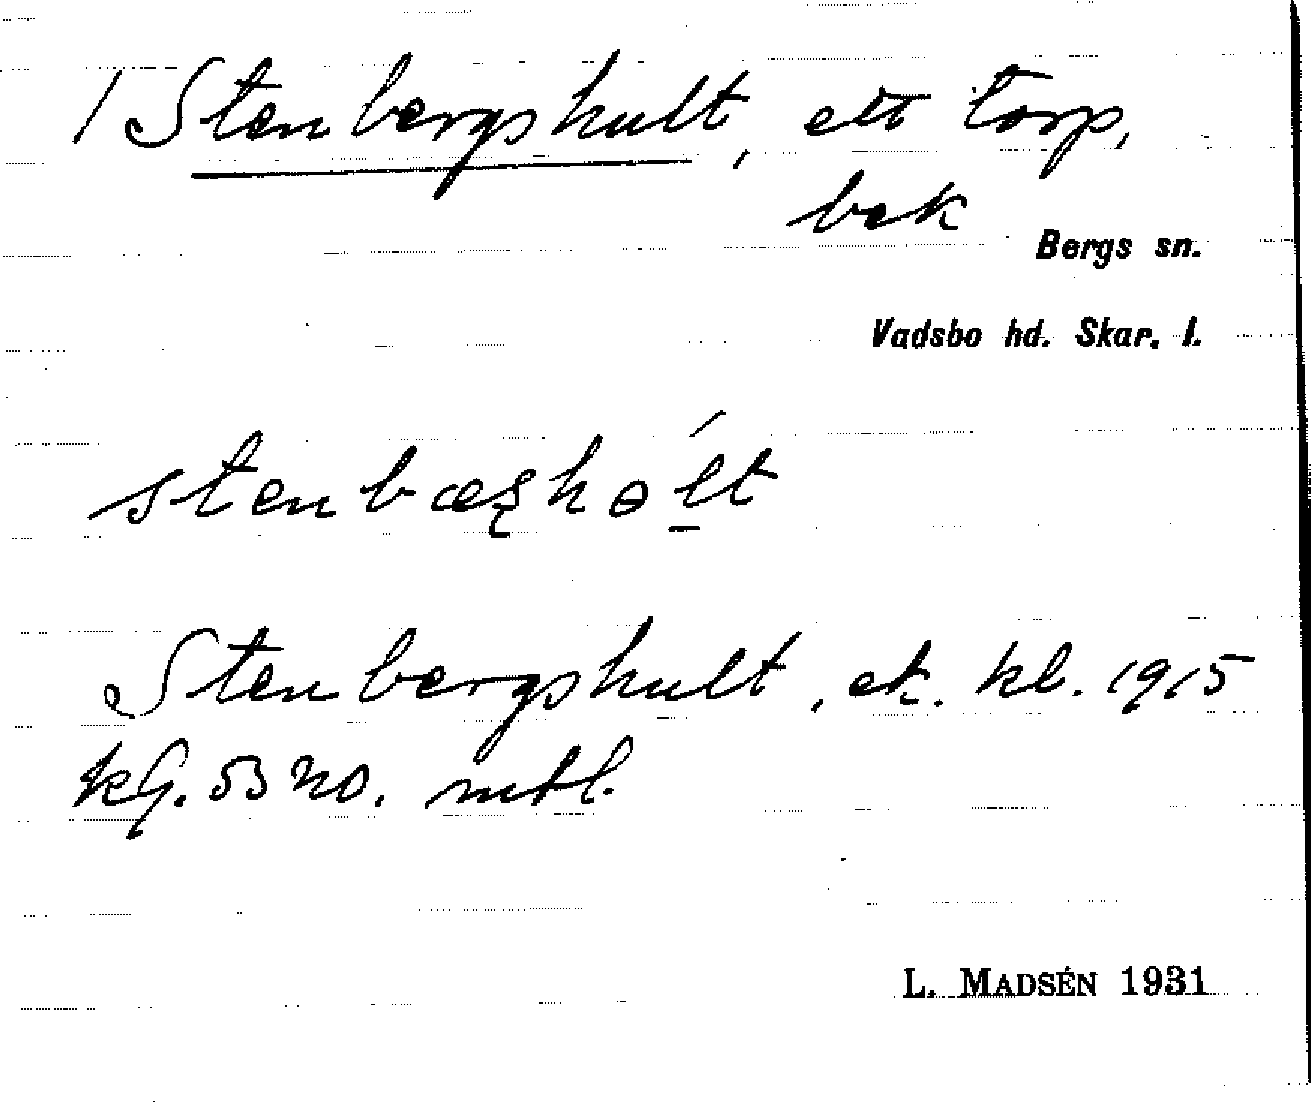 1 Stenbergshult, ett torp,
bek
Bergs sn.
Vadsbo hd. Skar. l.
stenbæʂhɵ́lt
Stenbergshult, ek. kl. 1915
kG. 53 NO. mtl.
L. MADSÉN 1931